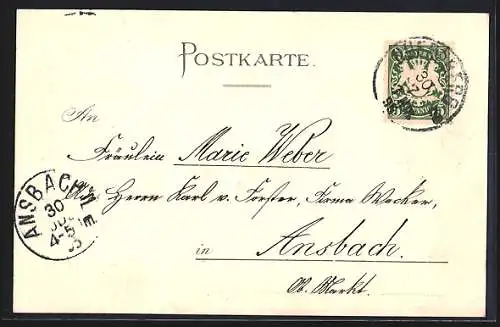 POSTKARTE.
An
Fräulein Marie Weber
Herrn Karl v. Forster, Firma Wecker,
in Ansbach.
Ob. Markt.
ANSBACH
30
4-5